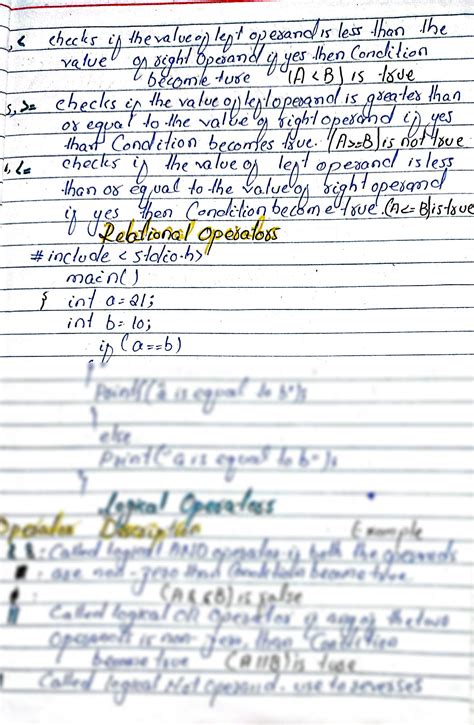 , < checks if the value of left operand is less than the
value of right operand if yes then Condition
become ture (A<B) is true
5, >= checks if the value of left operand is greater than
or equal to the value of right operand if yes
that Condition becomes true. (A>=B) is not true
, <= checks if the value of left operand is less
than or equal to the value of right operand
if yes then Condition become true. (A<=B) is true
Relational Operators
#include <stdio.h>
main()
{ int a=21;
int b=10;
if (a==b)
{
Printf("a is equal to b");
}
else
Printf("a is equal to b");
}
Logical Operators
Operator Description Example
&&: Called logical AND operator if both the operands
are non-zero then Condition become true.
(A&&B) is false
|| Called logical OR Operator if any of the two
Operands is non-zero, then Condition
become true (A||B) is true
Called logical Not Operand. use to reverses